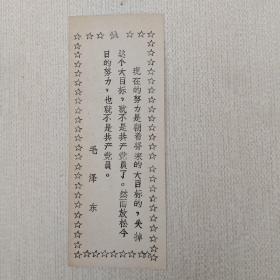 现在的努力是朝着将来的大目标的，失掉
这个大目标，就不是共产党员了。然而放松今
日的努力，也就不是共产党员。
毛泽东